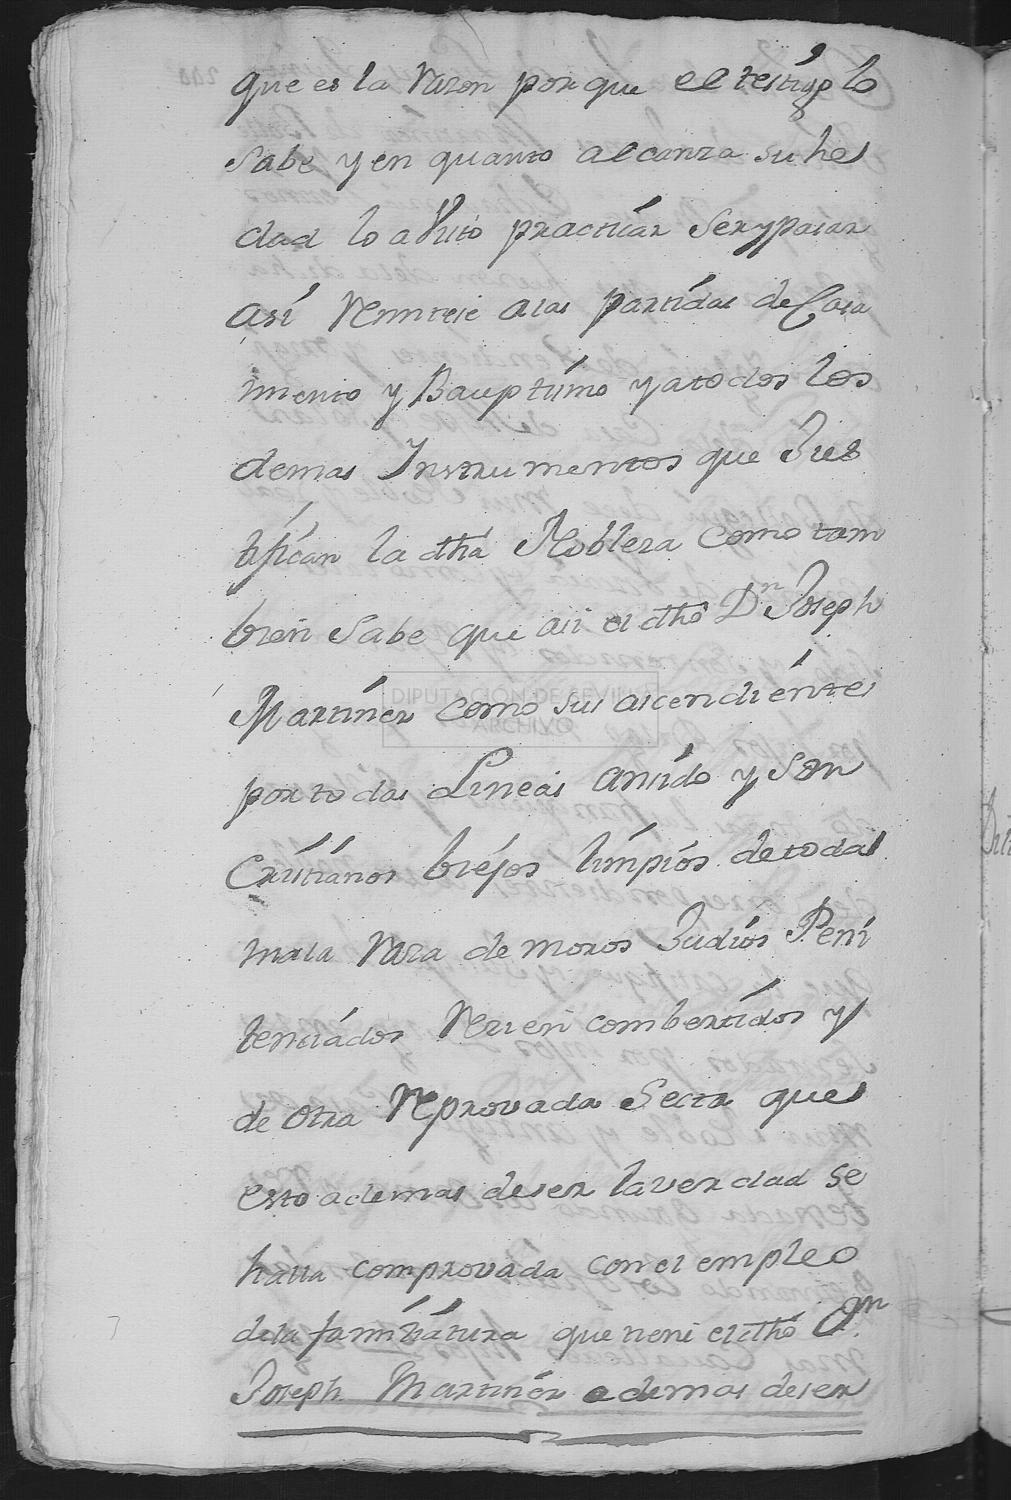 que es la Razon por que el testigo lo
Sabe y en quanto alcanza su he
dad lo a Visto practicar Ser y pasar
asi Remitese a las partidas de Casa
miento y Bauptismo y a todos los
demas Instrumentos que Jus
tifican la dha Nobleza como tam
bien Sabe que asi el dho Dn Joseph
Martinez como sus ascendientes
por todas Lineas an sido y Son
Cristianos biejos limpios de toda
mala Raza de moros Judios Peni
tenciados Rezien combertidos y
de otra Reprovada Secta que
esto ademas de ser la verdad se
halla comprovada con el empleo
de la familiatura que tiene el dho Dn
Joseph Martinez ademas de ser
DIPUTACIÓN DE SEVILLA
ARCHIVO